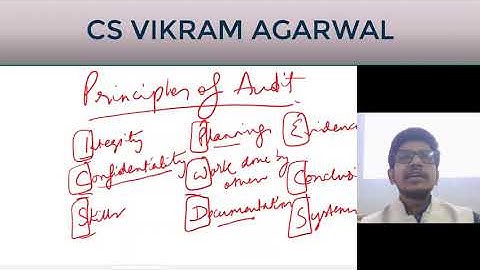 CS VIKRAM AGARWAL
Principles of Audit
Integrity Planning Evidenc
Confidentiality Work done by others Conclusi
Skills Documentation Systems